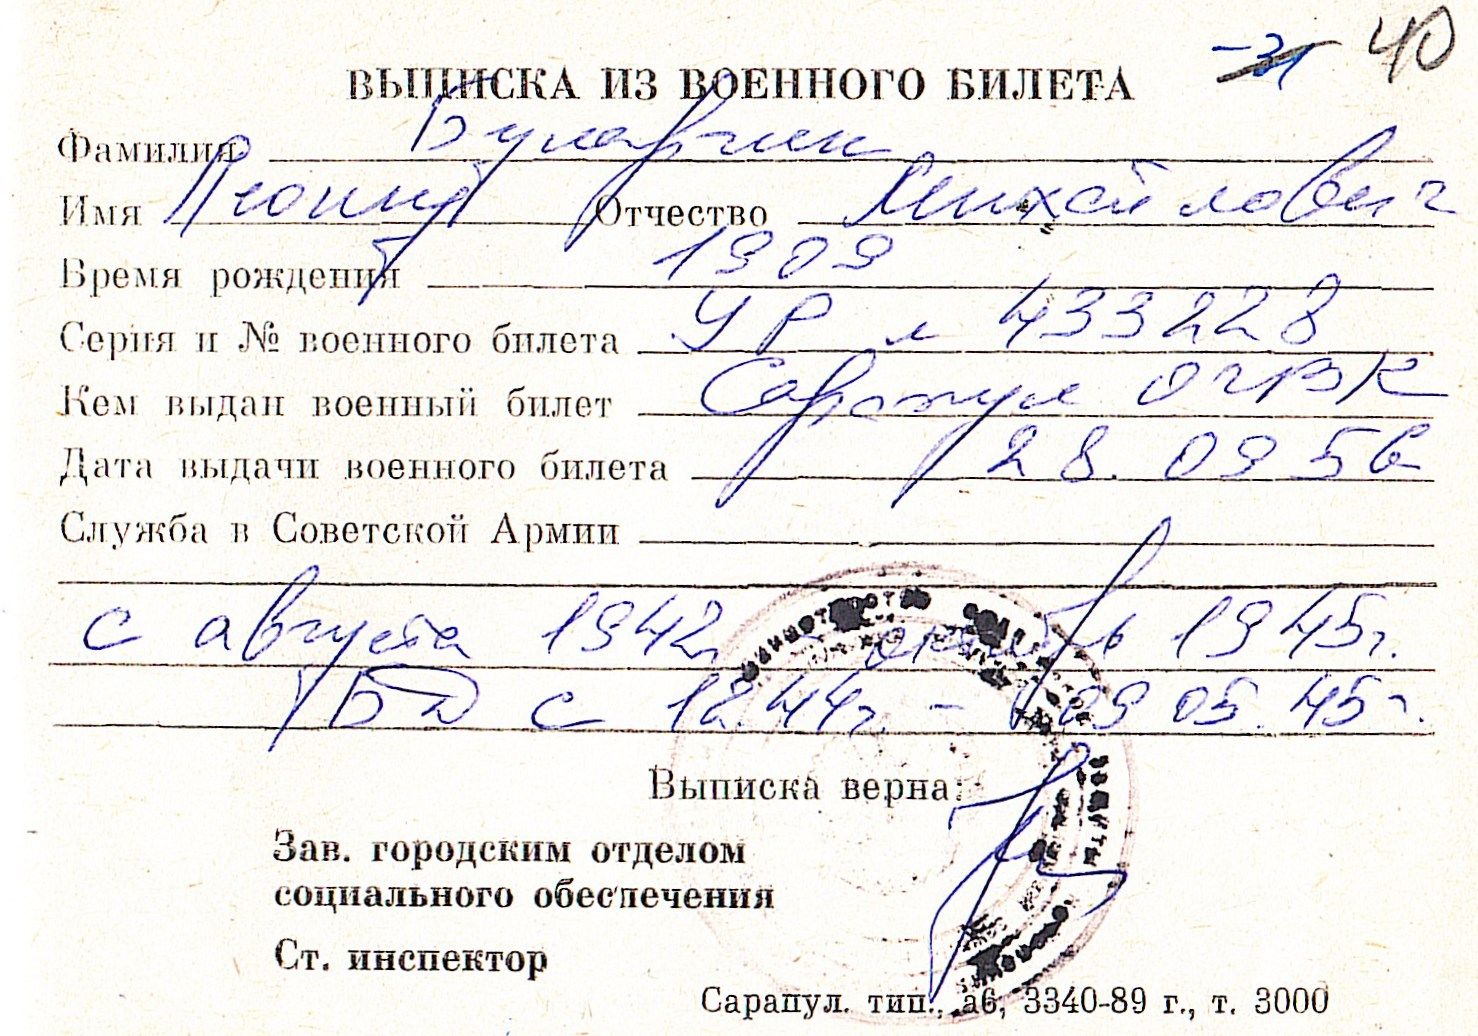 40
ВЫПИСКА ИЗ ВОЕННОГО БИЛЕТА
Фамилия
Имя Леонид Отчество Михайлович
Время рождения 1909
Серия и № военного билета УР № 433228
Кем выдан военный билет Сарапул ОГВК
Дата выдачи военного билета 28. 09 56
Служба в Советской Армии
с августа 1942 октябрь 1945г.
БД с 12.44г. - 09 05.45г.
Выписка верна:
Зав. городским отделом
социального обеспечения
Ст. инспектор
Сарапул. тип., а6, 3340-89 г., т. 3000